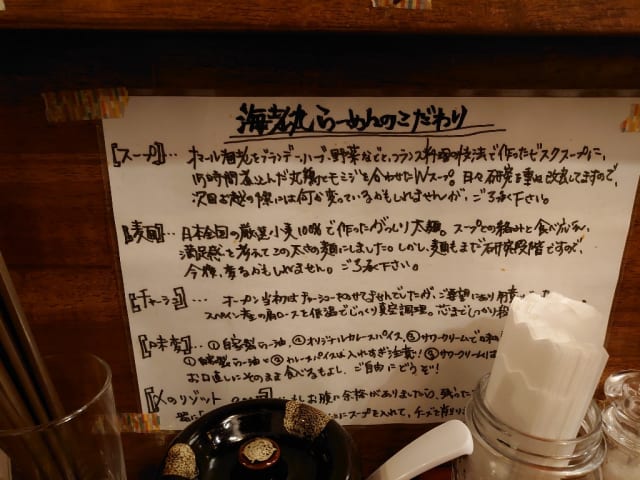 海老丸らーめんのこだわり
【スープ】… オマール海老をブランデー、ハーブ、野菜などと、フランス料理の技法で作ったビスクスープに、
時間煮込んだ丸鶏とモミジを合わせたWスープ。日々研究を重ね改良してますので、
次回お越の際には何か変っているかもしれませんが、ご了承下さい。
【麺】… 日本全国の厳選小麦100%で作ったがっしり太麺。スープとの絡みと食べごたえ、
満足感を考えてこの太さの麺にしました。しかし、麺もまだ研究段階ですので、
今後、変るかもしれません。ご了承下さい。
【チャーシュー】… オープン当初はチャーシューをのせてませんでしたが、ご要望により用意
スペイン産の肩ロースを低温でじっくり真空調理。芯までしっかり
【味変】… ①自家製らー油、②オリジナルカレースパイス、③サワークリームで味の
①自家製らー油と②カレースパイスは入れすぎ注意！③サワークリームは
お口直しにそのまま食べるもよし、ご自由にどうぞ！
【〆のリゾット】 もしお腹に余裕がありましたら、残った
にスープを入れて、チーズを削り